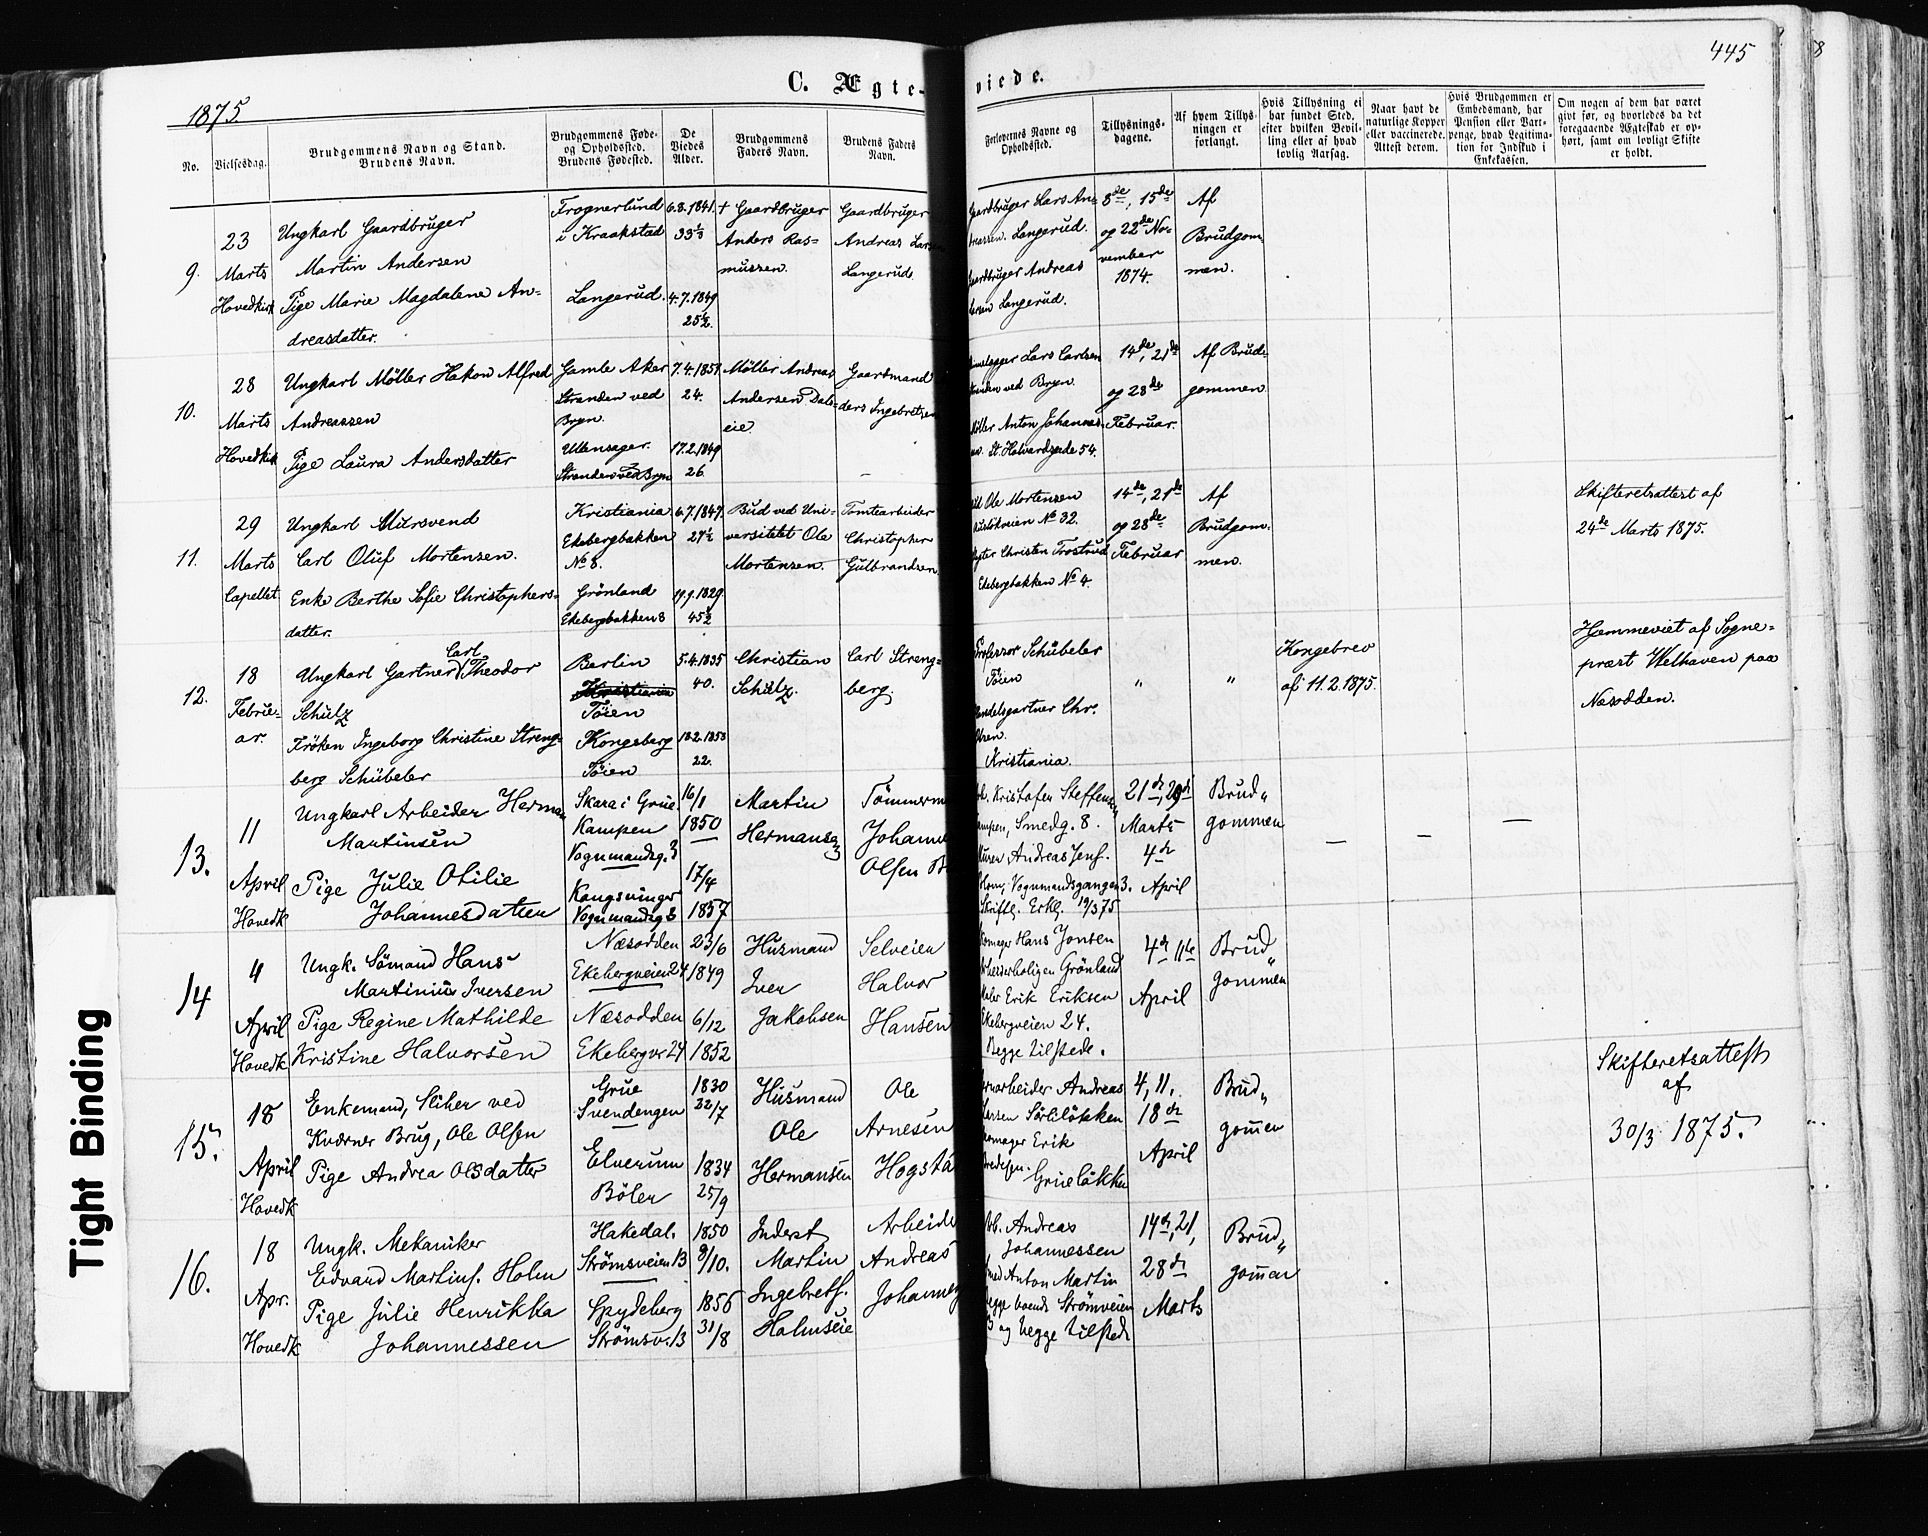 445
8
C. Ægte-
viede.
1875
No.
Vielsesdag.
Brudgommens Navn og Stand.
Brudens Navn.
Brudgommens Føde-
og Opholdssted.
Brudens Fødested.
De
Viedes
Alder.
Brudgommens
Faders Navn.
Brudens Faders
Navn.
Forlovernes Navne og
Opholdssted.
Tillysnings-
dagene.
Af hvem Tillys-
ningen er
forlangt.
Hvis Tillysning ei
har fundet Sted,
efter hvilken Bevil-
ling eller af hvad
lovlig Aarsag.
Naar havt de
naturlige Kopper
eller vaccinerede.
Attest derom.
Hvis Brudgommen er
Embedsmand, har
Pension eller Vart-
penge, hvad Legitima-
tion for Indskud i
Enkekassen.
Om nogen af dem har været
gift før, og hvorledes da det
foregaaende Ægteskab er op-
hørt, samt om lovligt Skifte
er holdt.
9.
23
Marts
Hovedkirk
Ungkarl Gaardbruger
Martin Andersen
Pige Marie Magdalene An-
dreasdatter.
Frognerlund
i Kraakstad
Langerud.
6.8.1841.
33⅓
4.7.1849
25½.
† Gaardbruger
Anders Ras-
mussen.
Gaardbruger
Andreas Larsen
Langerud
Gaardbruger Lars An-
dreassen. Langerud.
Gaardbruger Andreas
Larsen Langerud.
8de, 15de
og 22de No-
vember
1874.
Af
Brudgom-
men.
10.
28
Marts
Hovedkirk
Ungkarl Møller Hakon Alfred
Andreassen
Pige Laura Andersdatter
Gamle Aker
Stranden ved
Bryn.
Ullensager.
Stranden ved Bryn
7.4.1851
24.
17.2.1849
26.
Møller Andreas
Andersen Dals-
eie.
Gaardmand
ders Ingebretsen
–
Lars Carlsen
Stranden ved Bryn.
Møller Anton Johannes-
sen. St. Halvardsgade 54.
14de, 21de
og 28de
Februar.
Af Brud-
gommen.
11.
29
Marts
Capellet
Ungkarl Mursvend
Carl Oluf Mortensen.
Enke Berthe Sofie Christophers-
datter.
Kristiania
Ekebergbakken
No 8.
Grönland
Ekebergbakken 8
6.7.1847.
27½
19.9.1829
45½
Bud ved Uni-
versitetet Ole
Mortensen.
Tomtearbeider
Christopher
Gulbrandsen.
Ole Mortensen
No 32.
Christen Trostrud
Ekebergbakken No 4.
14de, 21de
og 28de
Februar
Af
Brudgom-
men.
Skifteretsattest af
24de Marts 1875.
12.
18
Febru-
ar.
Ungkarl Gartner Carl Theodor
Schulz
Fröken Ingeborg Christine Streng-
berg Schübeler
Berlin
Kristiania
Töien
Kongsberg
Töien
5.4.1835
40.
18.2.1853
22.
Christian
Schulz.
Carl Streng-
berg.
Professor Schübeler
Töien
Handelsgartner Chr.
Olsen.
Kristiania.
"
"
Kongebrev
af 11.2.1875.
Hjemmeviet af Sogne-
præst Welhaven paa
Næsodden.
13.
11
April
Hovedk
Ungkarl Arbeider Herman
Martinsen
Pige Julie Otilie
Johannesdatter
Skara i Grue
Kampen
Vognmandsg. 3
Kongsvinger
Vognmandsg 3
16/1
1850
17/4
1857
Martin
Hermansen
Tömmerm
Johannes
Olsen
Arb. Kristofer Steffens
Kampen, Smedg. 8.
Murer Andreas Jens.
Hom, Vognmandsgangen 3.
Skriftl. Erkl. 19/3 75
21de, 29de
Marts
4de
April
Brud„
gommen
—
—
—
14
4
April
Hovedk
Ungk. Sömand Hans
Martinius Iversen
Pige Regine Mathilde
Kristine Halvorsen
Næsodden
Ekebergveien 24
Næsodden
Ekebergv 24
23/6
1849
6/12
1852
Husmand
Iver
Jakobsen
Selveier
Halvor
Hansen
Skomager Hans Jonsen
Arbeiderboligen Grönland
Maler Erik Eriksen
Ekebergveien 24.
Begge tilstede.
4de 11te
April
Brud„
gommen
15.
18
April
Hovedk
Enkemand, Sliber ved
Kværner Brug, Ole Olsen
Pige Andrea Olsdatter
Grue
Svendengen
Elverum
Böler
1830
22/7
1834
25/9
Husmand
Ole
Hermansen
Ole
Arnesen
Hogsta
Jernarbeider Andreas
Larsen Sörliløkken
Skomager Erik
Grüeløkken
4, 11,
18de
April
Brud„
gommen
Skifteretsattest
af
30/3 1875.
16.
18
Apr.
Hovedk
Ungk. Mekaniker
Edvard Martins. Holm
Pige Julie Henrikka
Johannessen
Hakedal.
Strömsveien 13
Spydeberg
Strömsv. 13
1850
8/10.
1856
31/8
Inderst
Martin
Ingebrets.
Holmseie
Arbeider
Andreas
Johannes
Arb. Andreas
Johannessen
Smed Anton Martin
begge boende Strömveien
13 og begge tilstede
14de, 21,
28de
Marts
Brud„
gommen
Tight Binding